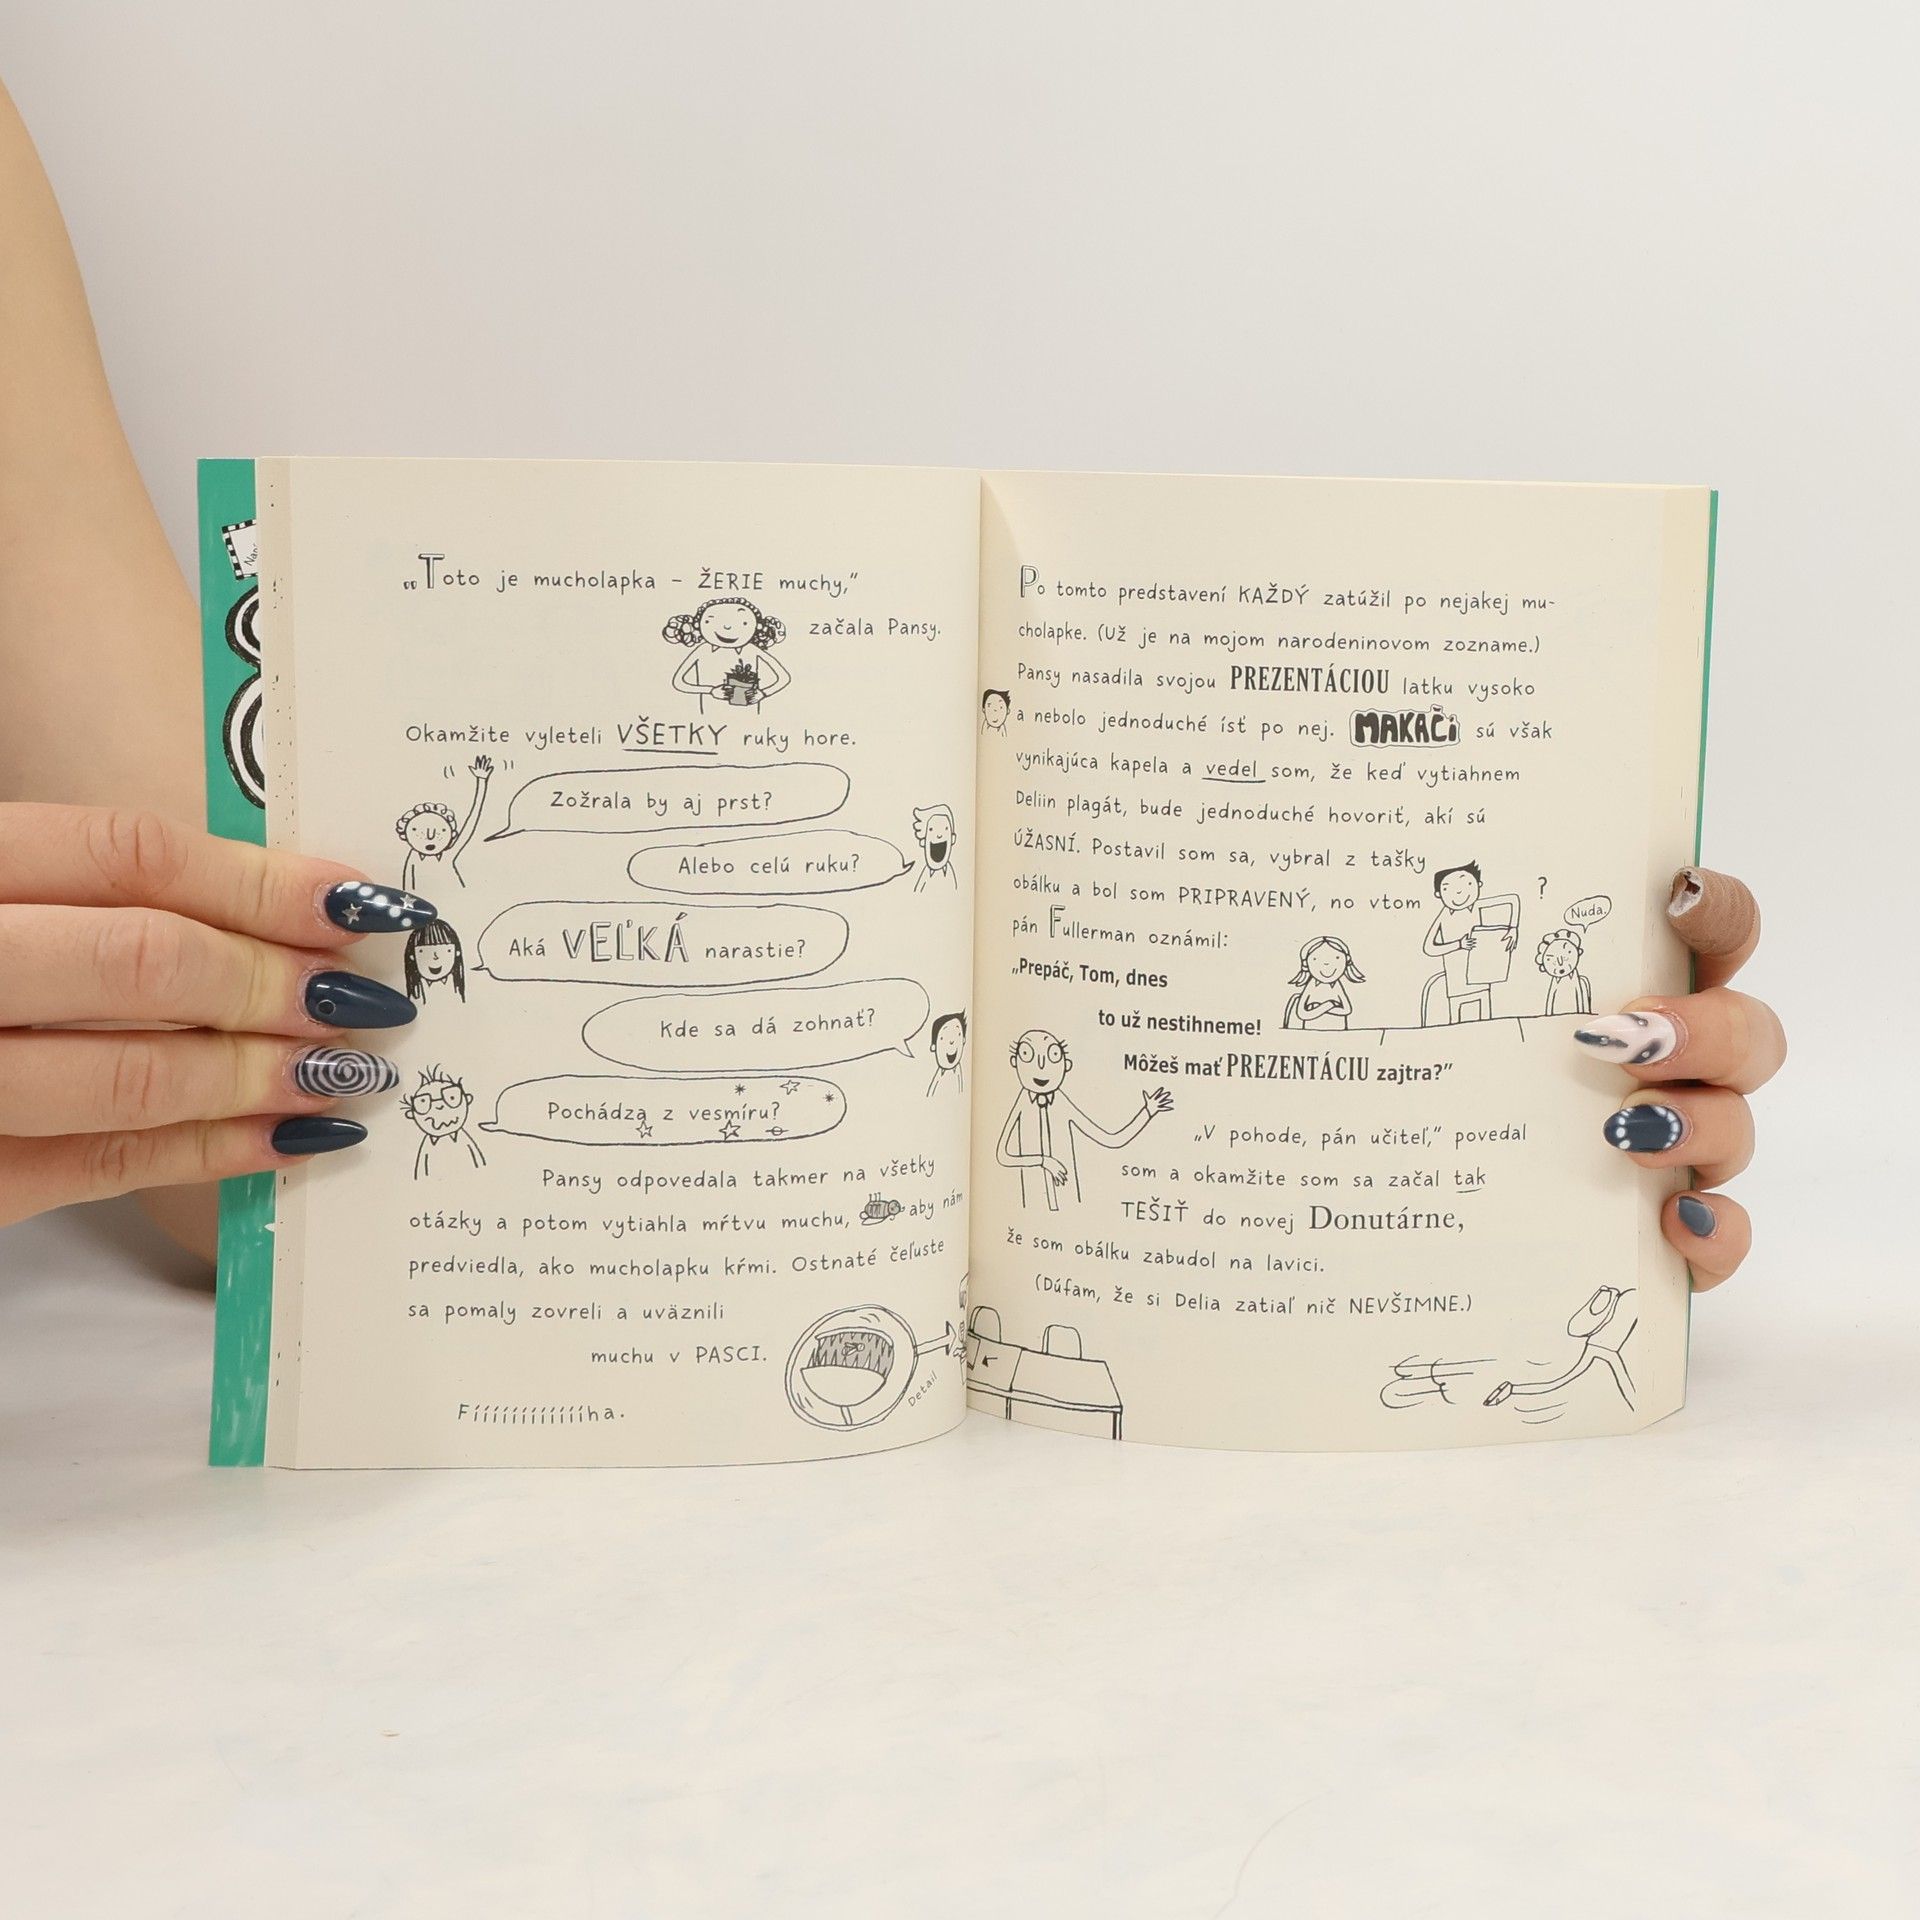 „Toto je mucholapka – ŽERIE muchy,“
začala Pansy.
Okamžite vyleteli VŠETKY ruky hore.
Zožrala by aj prst?
Alebo celú ruku?
Aká VEĽKÁ narastie?
Kde sa dá zohnať?
Pochádza z vesmíru?
Pansy odpovedala takmer na všetky
otázky a potom vytiahla mŕtvu muchu, aby nám
predviedla, ako mucholapku kŕmi. Ostnaté čeľuste
sa pomaly zovreli a uväznili
muchu v PASCI.
Detail
Fííííííííííííha.
Po tomto predstavení KAŽDÝ zatúžil po nejakej mu-
cholapke. (Už je na mojom narodeninovom zozname.)
Pansy nasadila svojou PREZENTÁCIOU latku vysoko
a nebolo jednoduché ísť po nej. MAKAČi sú však
vynikajúca kapela a vedel som, že keď vytiahnem
Deliin plagát, bude jednoduché hovoriť, akí sú
ÚŽASNÍ. Postavil som sa, vybral z tašky
obálku a bol som PRIPRAVENÝ, no vtom
pán Fullerman oznámil:
?
Nuda.
„Prepáč, Tom, dnes
to už nestihneme!
Môžeš mať PREZENTÁCIU zajtra?“
„V pohode, pán učiteľ,“ povedal
som a okamžite som sa začal tak
TEŠIŤ do novej Donutárne,
že som obálku zabudol na lavici.
(Dúfam, že si Delia zatiaľ nič NEVŠIMNE.)